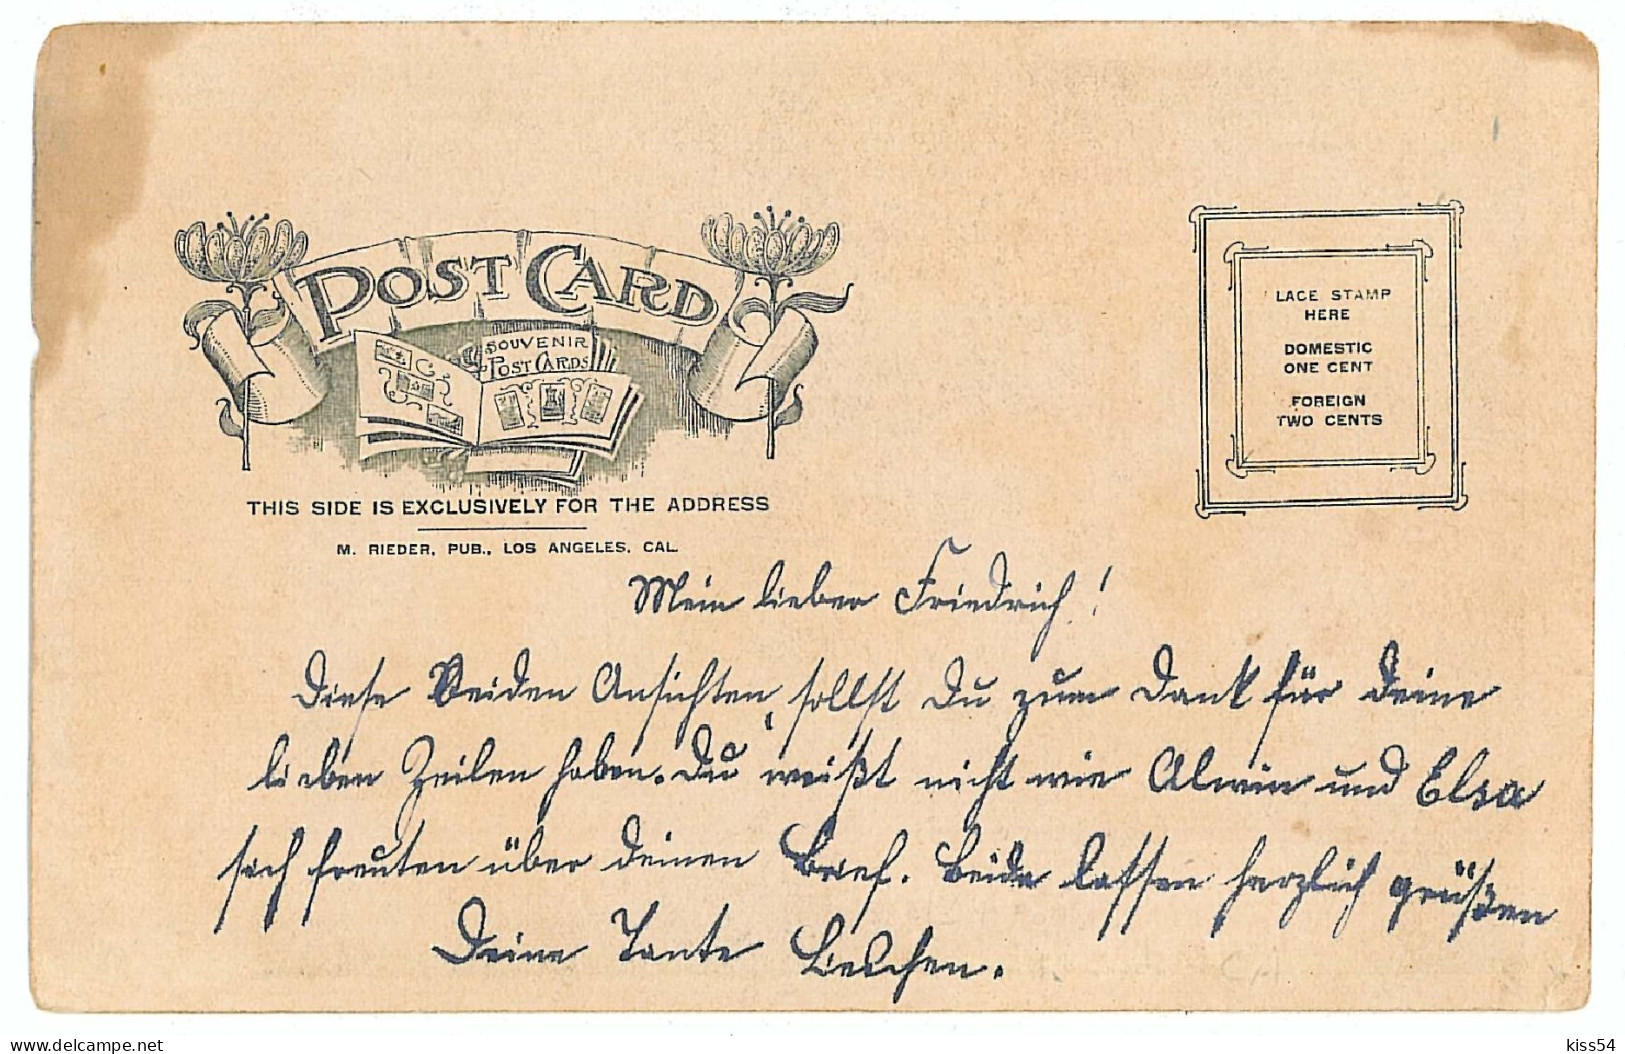 POST CARD
SOUVENIR
POST CARDS
THIS SIDE IS EXCLUSIVELY FOR THE ADDRESS
M. RIEDER, PUB., LOS ANGELES, CAL.
LACE STAMP
HERE
DOMESTIC
ONE CENT
FOREIGN
TWO CENTS
Mein lieber Friedrich!
Diese Beiden Ansichten, sollst Du zum Dank für Deine
lieben Zeilen haben. Du weißt nicht wie Alwin und Elsa
sich freuten über Deinen Brief. Beide lassen herzlich grüßen
Deine Tante
delcampe.net
kiss54